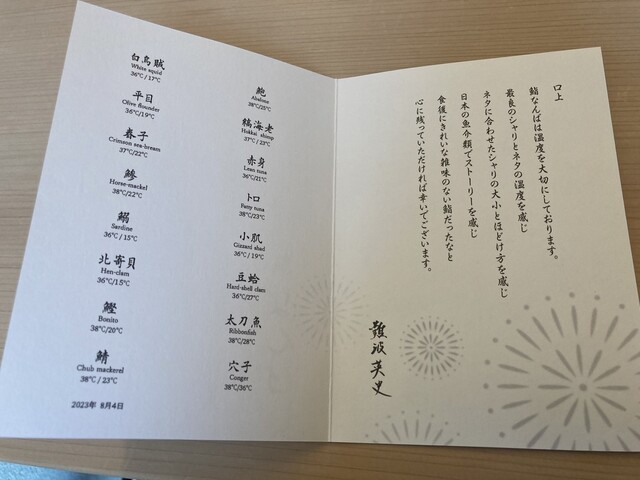 白烏賊
White squid
36℃ / 17℃
平目
Olive flounder
36℃/19℃
春子
Crimson sea-bream
37℃/22℃
鯵
Horse-mackel
38℃/22℃
鰯
Sardine
36℃ / 15℃
北寄貝
Hen-clam
36℃/15℃
鰹
Bonito
38℃/20℃
鯖
Chub mackerel
38℃ / 23℃
2023年 8月4日
鮑
Abalone
38℃/25℃
縞海老
Hokkai shrimp
37℃ / 23℃
赤身
Lean tuna
36℃/21℃
トロ
Fatty tuna
38℃/23℃
小肌
Gizzard shad
36℃ / 19℃
豆蛤
Hard-shell clam
36℃/27℃
太刀魚
Ribbonfish
38℃/28℃
穴子
Conger
38℃/36℃
口上
鮨なんばは温度を大切にしております。
最良のシャリとネタの温度を感じ
ネタに合わせたシャリの大小とほどけ方を感じ
日本の魚介類でストーリーを感じ
食後にきれいな雑味のない鮨だったなと
心に残っていただければ幸いでございます。
難波英史